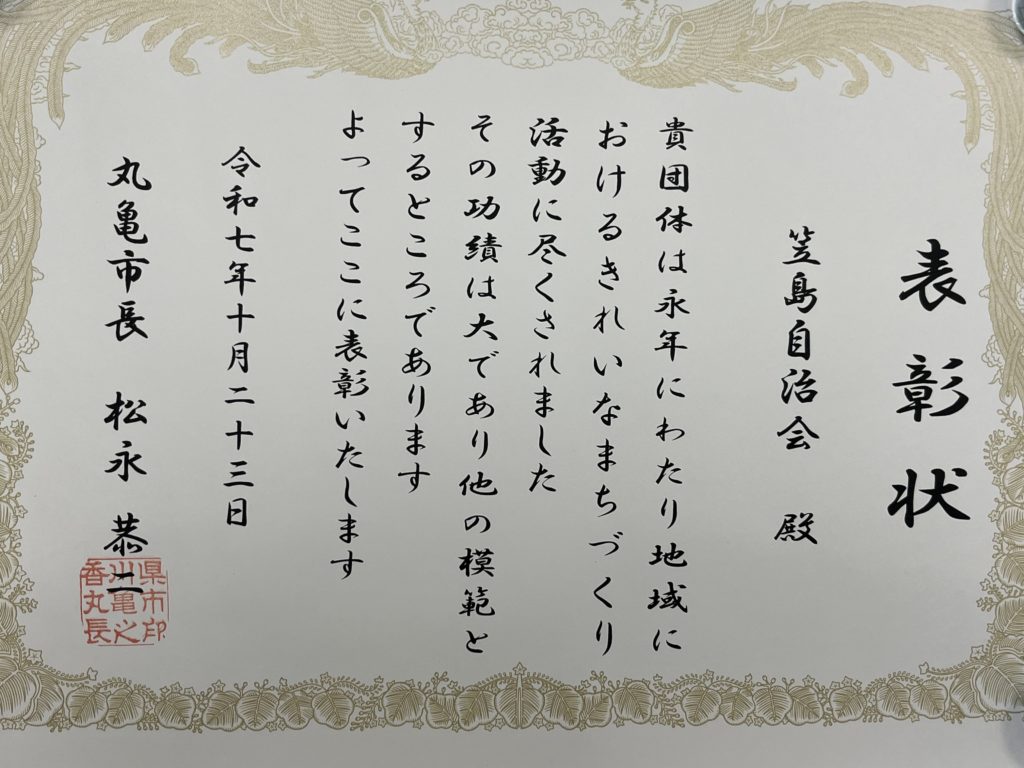 表彰状
笠島自治会 殿
貴団体は永年にわたり地域に
おけるきれいなまちづくり
活動に尽くされました
その功績は大であり他の模範と
するところであります
よってここに表彰いたします
令和七年十月二十三日
丸亀市長 松永 恭二
香川県
丸亀市
長之印